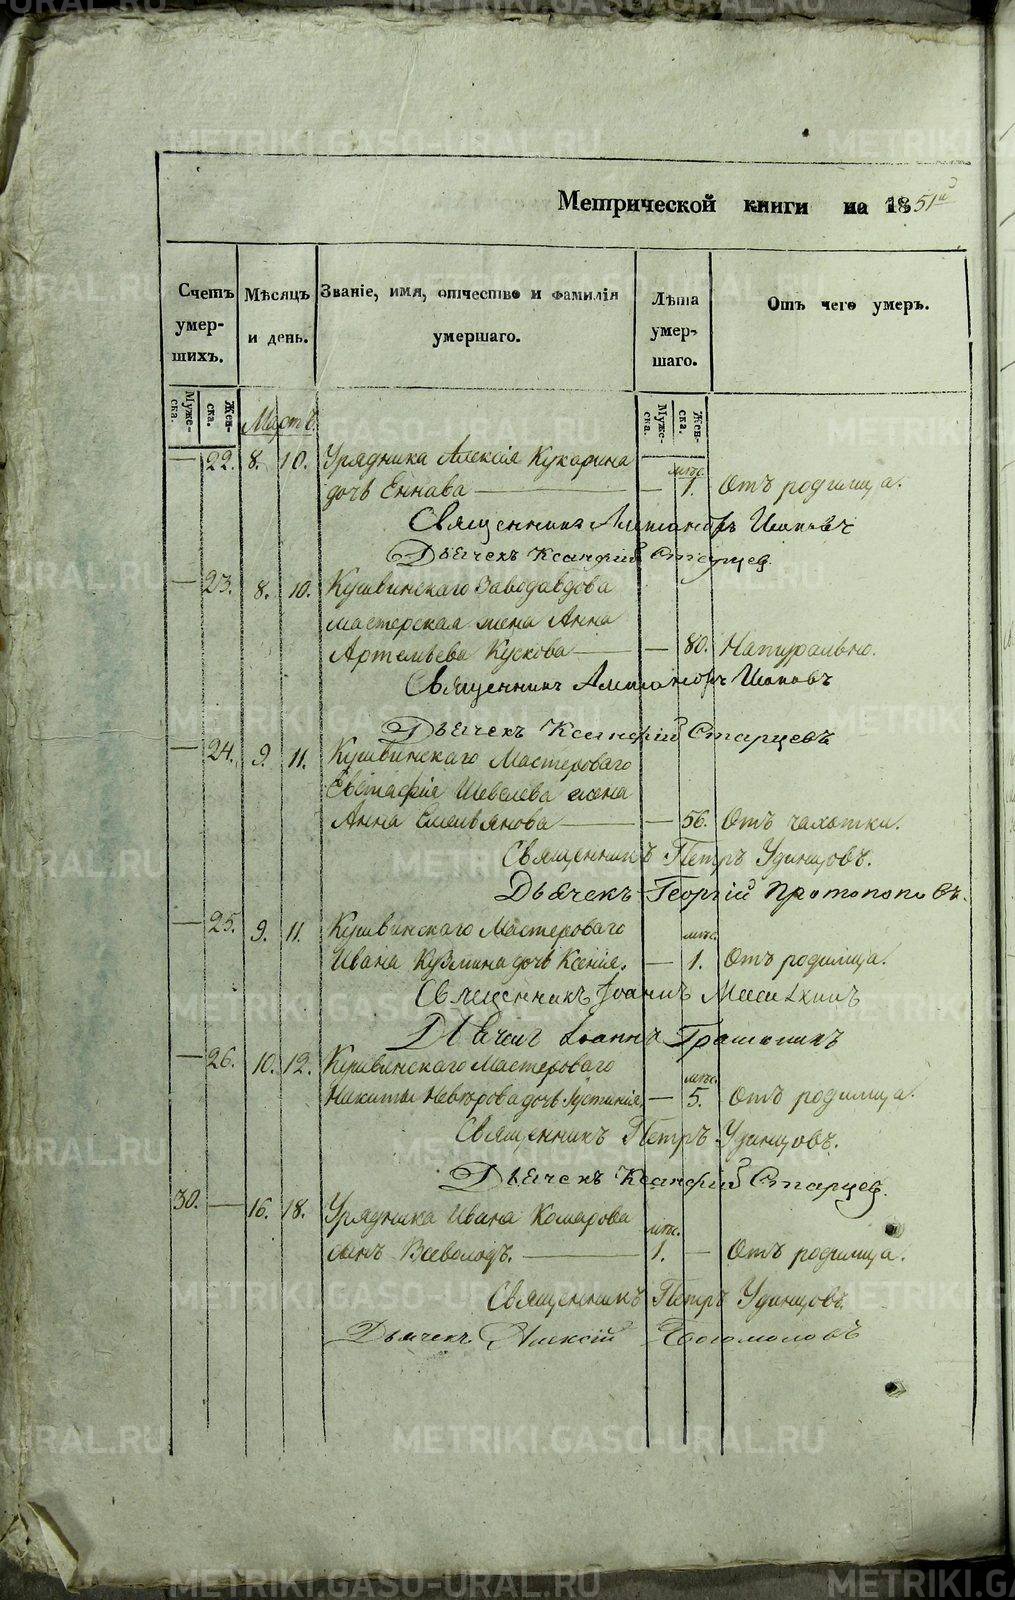 Метрической книги на 1851й
Счетъ умер-шихъ.
Мѣсяцъ и день.
Званіе, имя, отчество и фамилія умершаго.
Лѣта умер-шаго.
Отъ чего умеръ.
Муже-ска. Жен-ска.
Мартъ.
Муже-ска. Жен-ска.
— 22. 8. 10. Урядника Алексія Кукарина
мѣс.
дочь — — 1. Отъ родимца.
Священникъ Поповъ
Дьячекъ Ксанфій Старцев
— 23. 8. 10. Кушвинскаго
мастерская жена Анна
Артемьева Кускова — — 80. Натурально.
Священникъ Поповъ
Дьячекъ Ксанфій Старцевъ
— 24. 9. 11. Кушвинскаго Мастероваго
Евстафія Шевелева жена
Анна Емельянова — — 56. Отъ чахотки.
Священникъ Петръ Удинцовъ.
Дьячекъ Георгій Протопоповъ.
— 25. 9. 11. Кушвинскаго Мастероваго
мѣс.
Ивана Кузмина дочь Ксенія. — 1. Отъ родимца.
Священникъ Іоаннъ
Іоаннъ
— 26. 10. 12. Кушвинскаго Мастероваго
мѣс.
Никиты дочь Іустинія, — 5. Отъ родимца.
Священникъ Петръ Удинцовъ.
Дьячекъ Ксанфій Старцев.
30. — 16. 18. Урядника Ивана Комарова
мѣс.
сынъ Всеволодъ. — 1. — Отъ родимца.
Священникъ Петръ Удинцовъ.
Дьячекъ Алексій Богомоловъ
METRIKI.GASO-URAL.RU